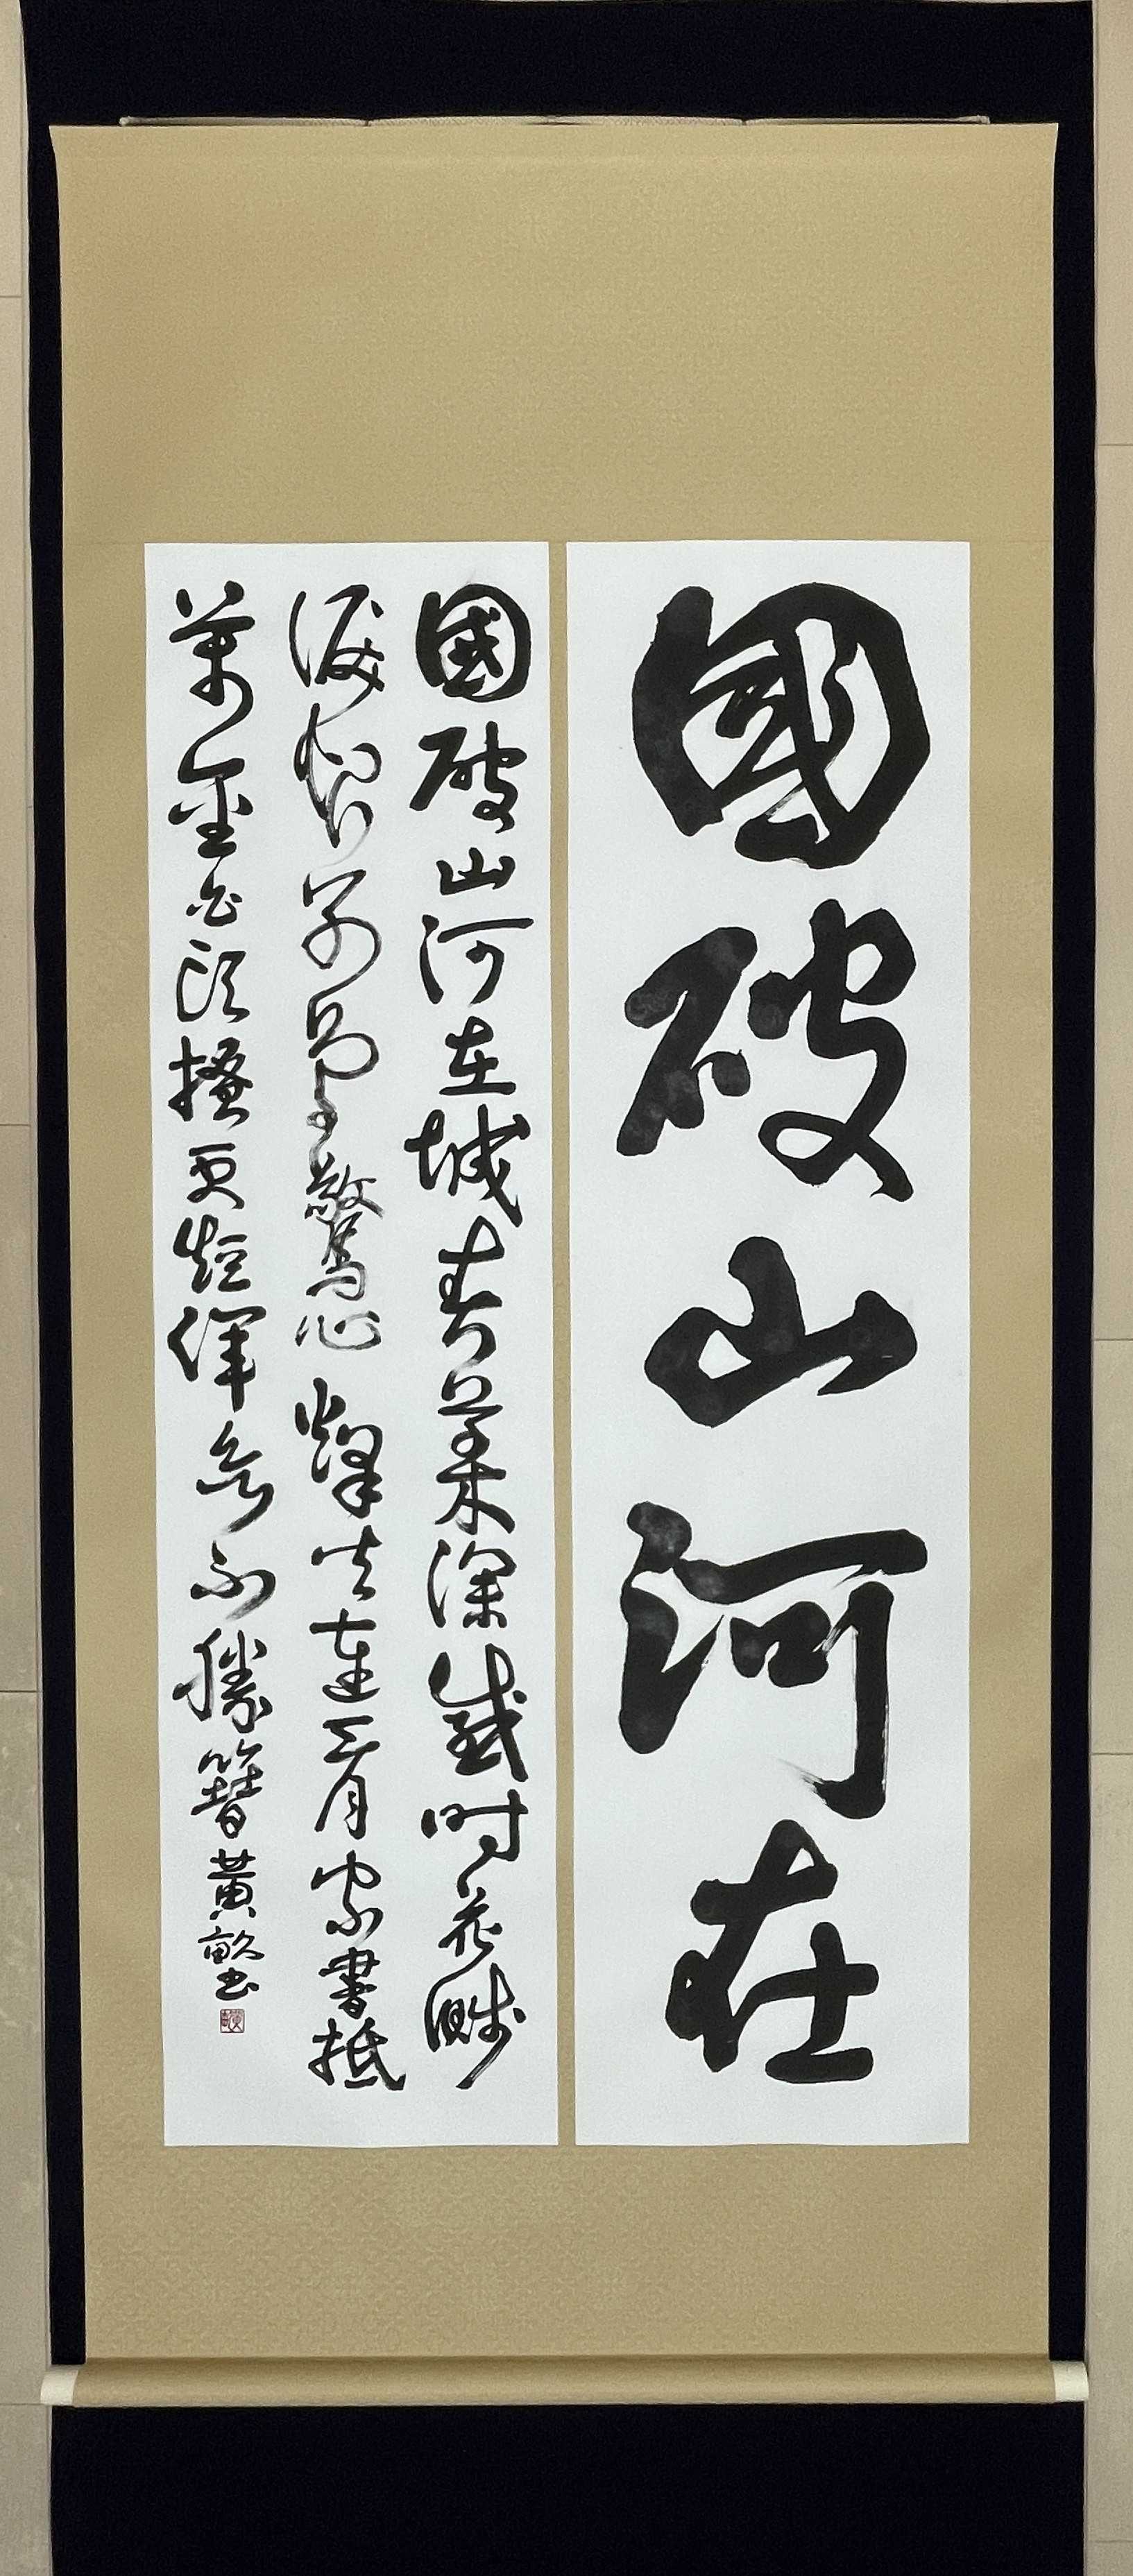 國破山河在
國破山河在城春草木深感時花濺
淚恨別鳥驚心烽火連三月家書抵
萬金白頭搔更短渾欲不勝簪黃書